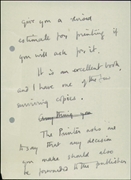 give you a revised
estimate for printing if
you will ask for it.
It is an excellent book,
and I have one of the few
surviving copies.
The Printer asks me
to say that any decision
you make should also
be permitted to the publisher